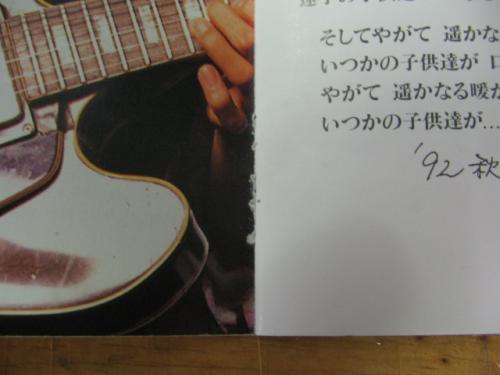 そしてやがて 遥かな
いつかの子供達が
やがて 遥かなる暖か
いつかの子供達が…
'92 秋